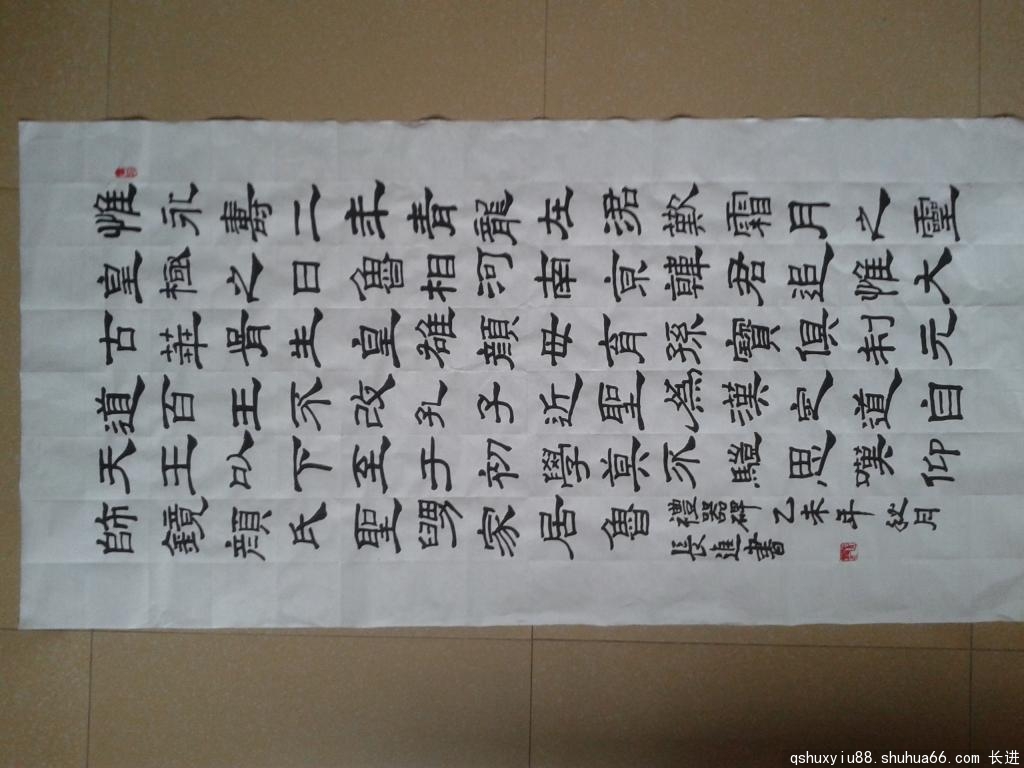 惟永壽二年青龍在涒歎霜月之靈
皇極之日魯相河南京韓君追惟大
古華胥生皇雄顏毋育孫寶俱制元
道百王不改孔子近聖為漢定道自
天王以下至于初學莫不驥思嘆仰
師鏡顏氏聖舅家居魯
禮器碑乙未年秋月
長進書
qshuxyiu88.shuhua66.com 长进